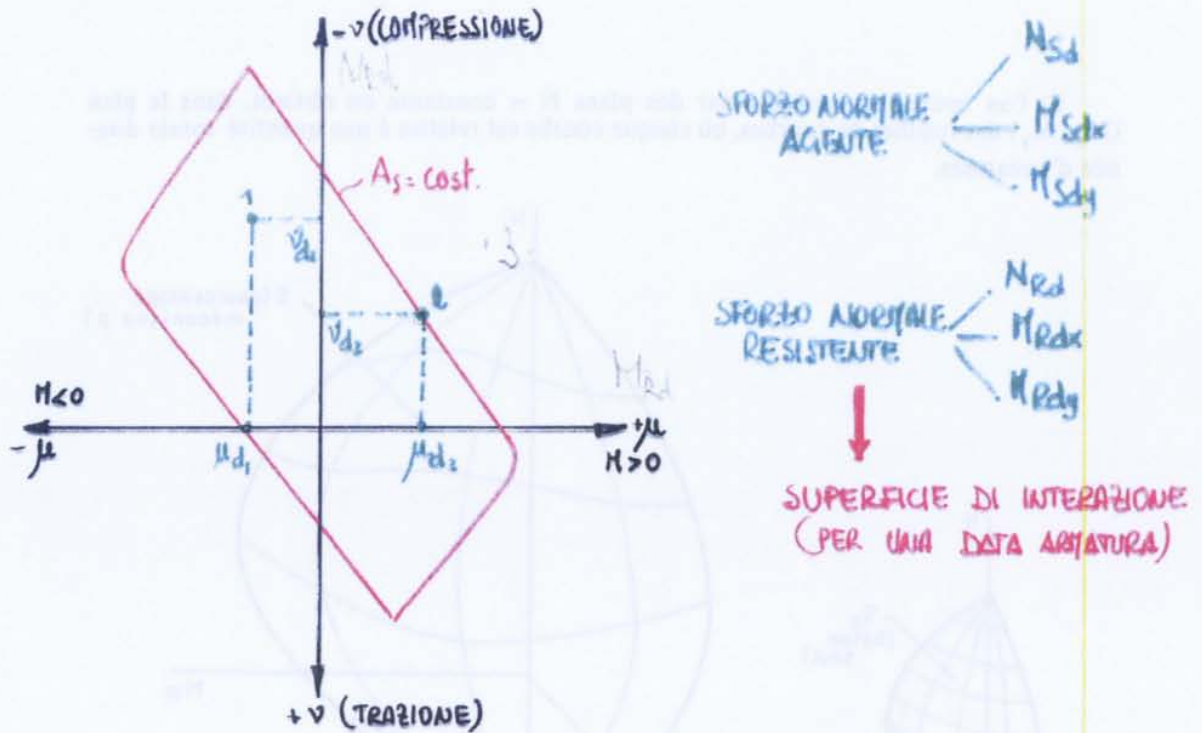 -ν (COMPRESSIONE)
NRd
As = cost.
1
νd1
3
2
νd2
MRd
M<0
-μ
μd1
μd2
+μ
M>0
+ν (TRAZIONE)
SFORZO NORMALE
AGENTE
NSd
MSdx
MSdy
SFORZO NORMALE
RESISTENTE
NRd
MRdx
MRdy
SUPERFICIE DI INTERAZIONE
(PER UNA DATA ARMATURA)